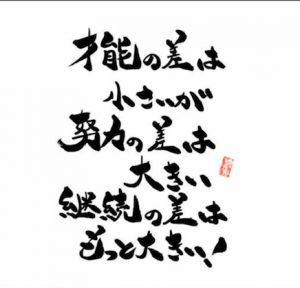 才能の差は
小さいが
努力の差は
大きい
継続の差は
もっと大きい!